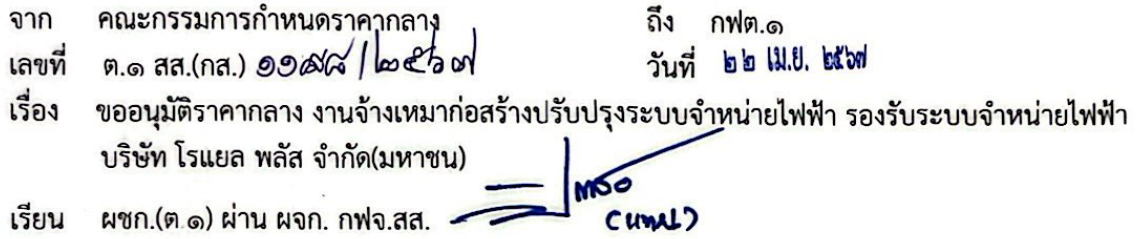 จาก คณะกรรมการกำหนดราคากลาง ถึง กฟต.๑
เลขที่ ต.๑ สส.(กส.) ๑๑๙๘/๒๕๖๗ วันที่ ๒๒ เม.ย. ๒๕๖๗
เรื่อง ขออนุมัติราคากลาง งานจ้างเหมาก่อสร้างปรับปรุงระบบจำหน่ายไฟฟ้า รองรับระบบจำหน่ายไฟฟ้า
บริษัท โรแยล พลัส จำกัด(มหาชน)
เรียน ผชก.(ต.๑) ผ่าน ผจก. กฟจ.สส.